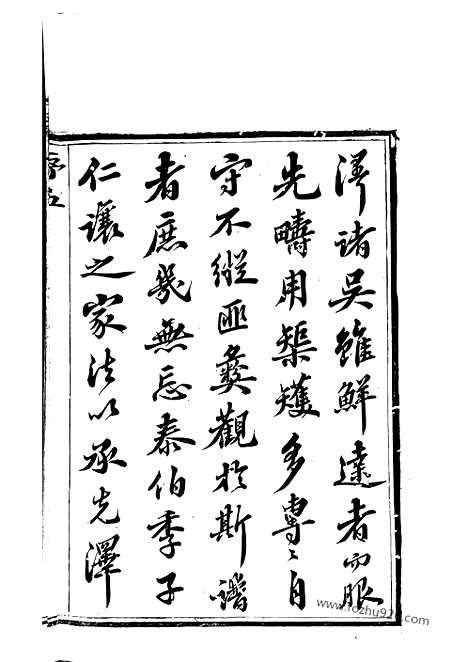 澤諸吳雖鮮達者而服
先疇用榘矱多專〻自
守不縱匪彝觀於斯譜
者庶幾無忘泰伯季子
仁讓之家法以承先澤
序五
www.fozhu920.com